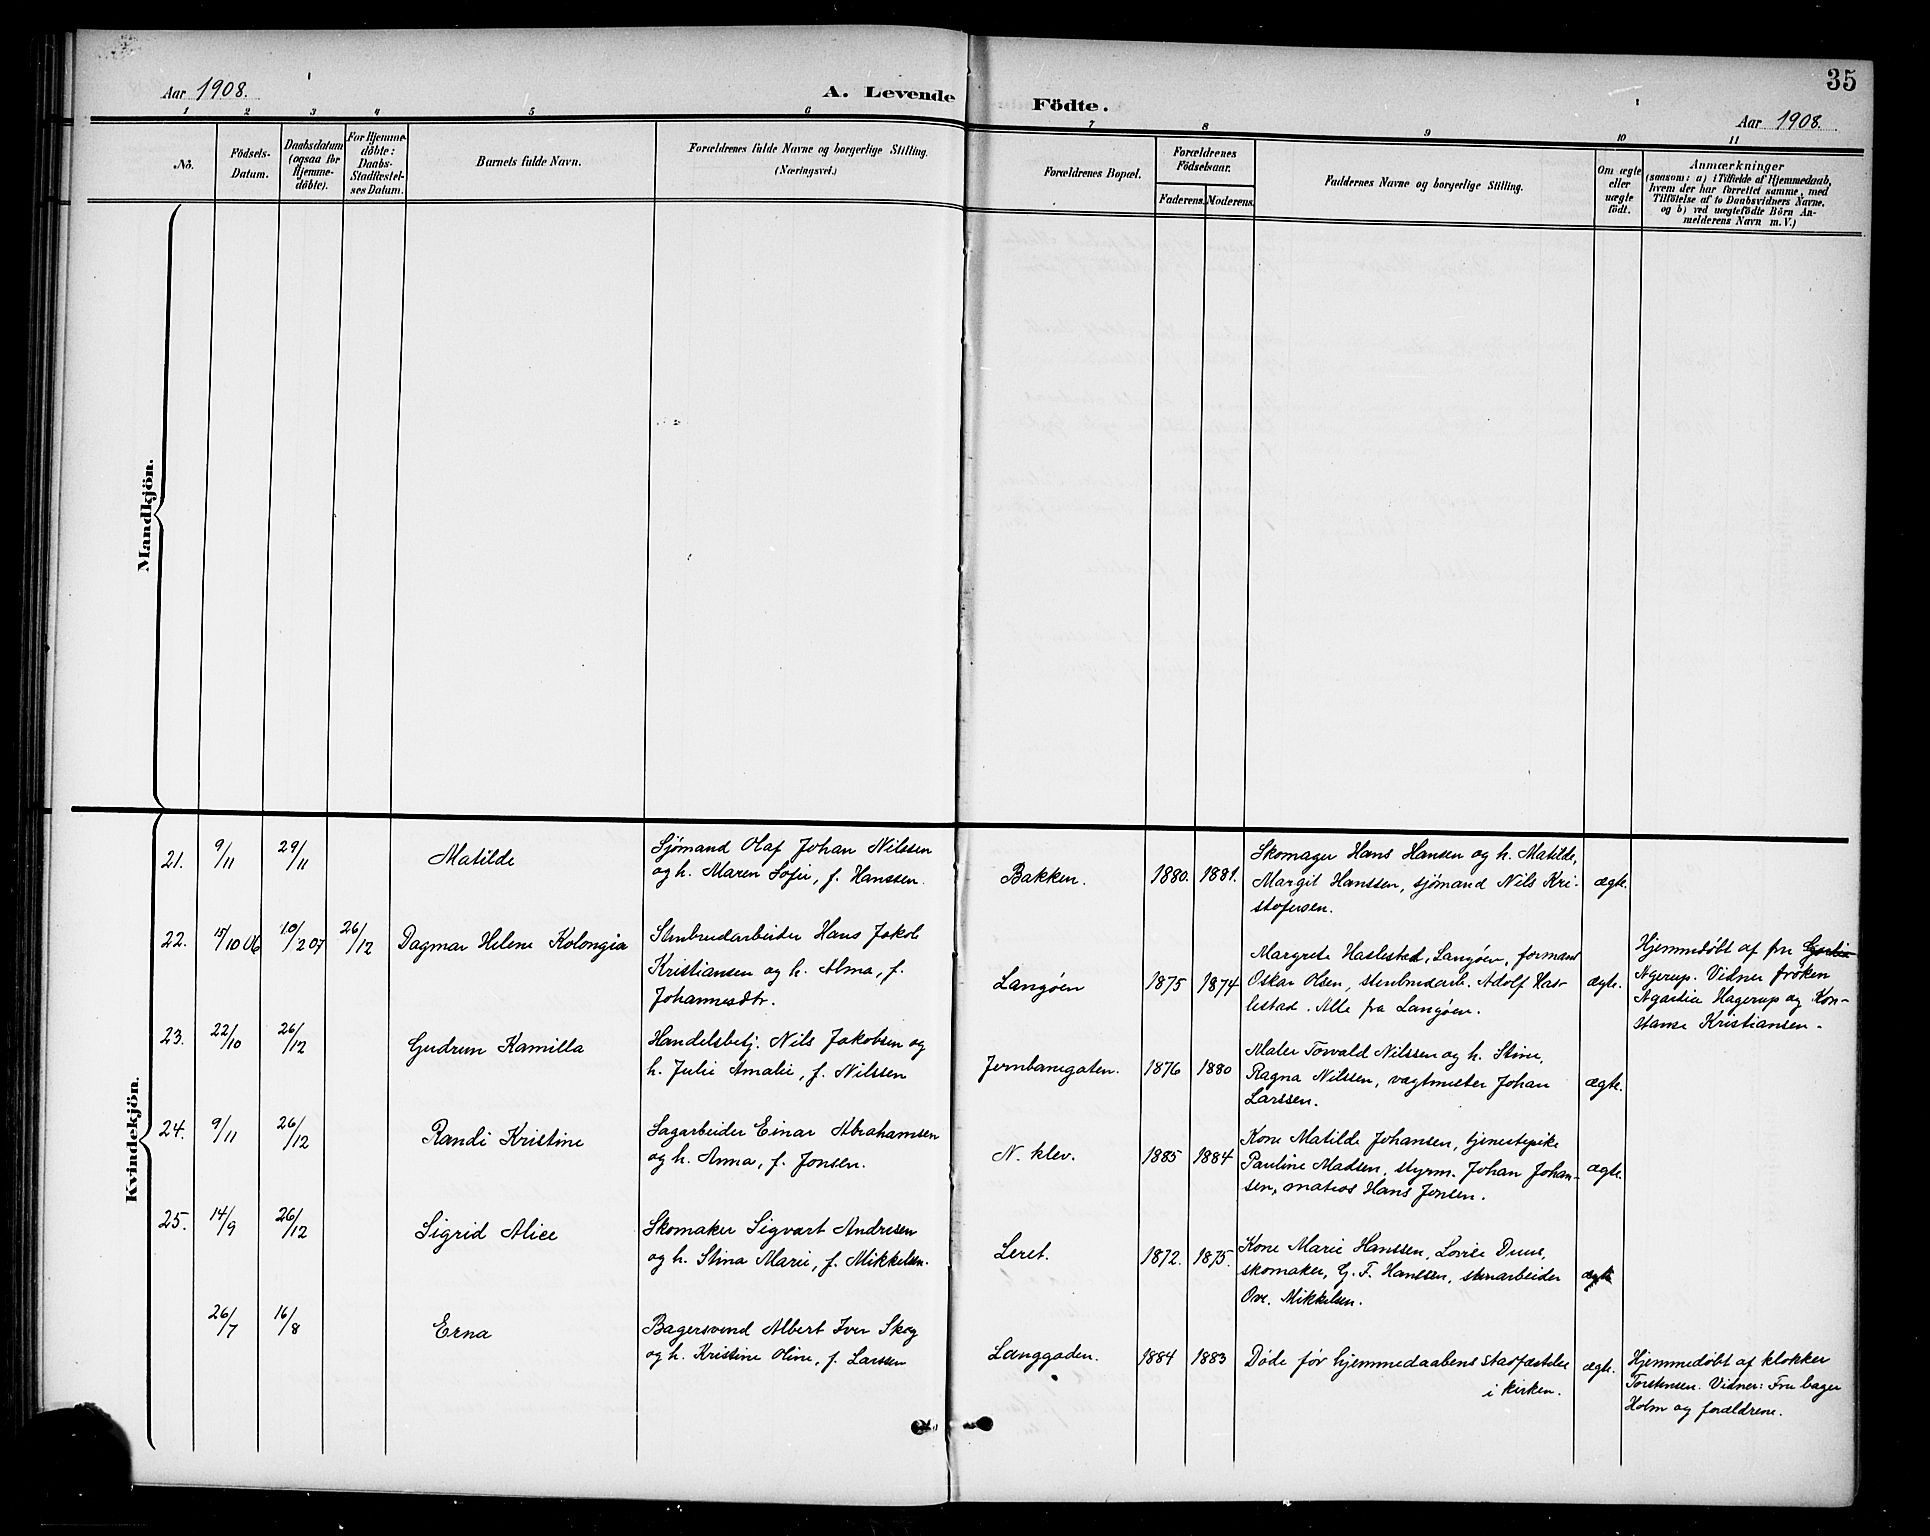 35
Aar 1908.
A. Levende
Födte.
Aar 1908.
1 2 3 4 5 6
7 8 9 10 11
Nô.
Födsels-
Datum.
Daabsdatum
(ogsaa for
Hjemme-
döbte).
For Hjemme-
döbte:
Daabs-
Stadfæstel-
ses Datum.
Barnets fulde Navn.
Forældrenes fulde Navne og borgerlige Stilling.
(Næringsvei.)
Forældrenes Bopæl.
Forældrenes
Födselsaar.
Faderens.
Moderens.
Faddernes Navne og borgerlige Stilling.
Om ægte
eller
uægte
født.
Anmærkninger
(saasom: a) i Tilfælde af Hjemmedaab,
hvem der har forrettet samme, med
Tilföielse af to Daabsvidners Navne,
og b) ved uægtefödte Börn An-
melderens Navn m. V.)
Mandkjön.
Kvindekjön.
21.
9/11
29/11
Matilde
Sjømand Olaf Johan Nilssen
og h. Maren Sofie, f. Hanssen.
Bakken.
1880.
1881.
Skomager Hans Hansen og h. Matilde,
Margit Hanssen, sjømand Nils Kri-
stofersen.
ægte.
22.
15/10 06
10/2 07
26/12
Dagmar Helene Kolongia
Stenbrudarbeider Hans Jakob
Kristiansen og h. Alma, f.
Johannesdtr.
Langøen
1875
1874
Margrete Haslestad, Langøen, formand
Oskar Olsen, stenbrudarb. Adolf Has-
lestad. Alle fra Langøen.
ægte.
Hjemmedøbt af fru
Agerup. Vidner frøken
Agartia Hagerup og Kon-
stanse Kristiansen.
23.
22/10
26/12
Gudrun Kamilla
Handelsbetj. Nils Jakobsen og
h. Julie Amalie, f. Nilssen
Jernbanegaten.
1876
1880
Maler Torvald Nilssen og h. Stine,
Ragna Nilssen, vægtmeter Johan
Larssen.
ægte.
24.
9/11
26/12
Randi Kristine
Sagarbeider Einar Abrahamsen
og h. Anna, f. Jonsen.
N. klev.
1885
1884
Kone Matilde Johansen, tjenestepike
Pauline Madsen, styrm. Johan Johan-
sen, matros Hans Jensen.
ægte.
25.
14/9
26/12
Sigrid Alice
Skomaker Sigvart Andresen
og h. Stina Marie, f. Mikkelsen.
Leret.
1872.
1875.
Kone Marie Hanssen, Lovise Duus,
skomaker, G. F. Hanssen, stenarbeider
Ove. Mikkelsen.
ægte
26/7
16/8
Erna
Bagersvend Albert Iver Skog
og h. Kristine Oline, f. Larssen
Langgaden.
1884
1883
Døde før hjemmedaabens stadfæstelse
i kirken.
ægte.
Hjemmedøbt af klokker
Torstensen. Vidner: Fru bager
Holm og forældrene.